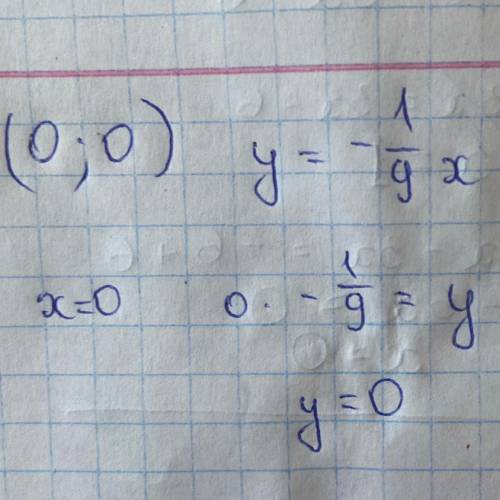 (0;0) y = -1/9 x
x=0 0 · -1/9 = y
y=0